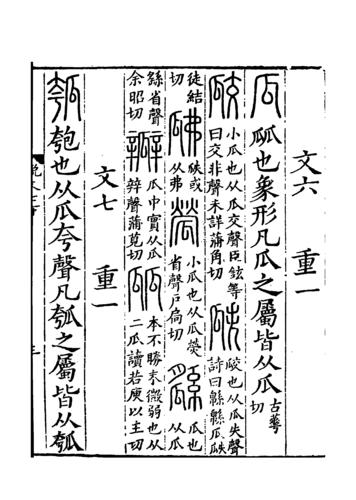 文六 重一
瓜 㼌也象形凡瓜之屬皆从瓜古華切
㼎 小瓜也从瓜交聲臣鉉等曰交非聲未詳蒲角切 瓞 㼎也从瓜失聲詩曰緜緜瓜瓞
徒結切 瓞或从弗 小瓜也从瓜熒省聲戶扃切 瓜也从瓜
繇省聲余昭切 瓣 瓜中實从瓜辡聲蒲莧切 㼌 本不勝末微弱也从二瓜讀若庾以主切
文七 重一
瓠 匏也从瓜夸聲凡瓠之屬皆从瓠